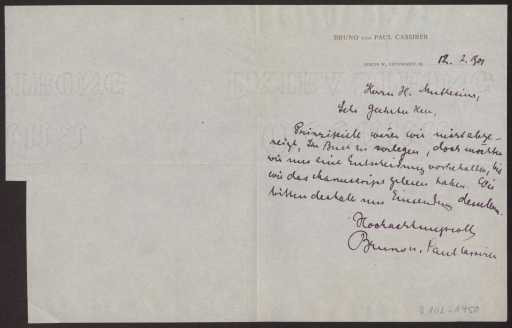 BRUNO UND PAUL CASSIRER
BERLIN W,
12. 2. 1901
Herrn H. Muthesius,
Sehr geehrter Herr,
Prinzipiell wären wir nicht abge-
neigt, Ihr Buch zu verlegen, doch möchten
wir uns eine Entscheidung vorbehalten, bis
wir das Manuscript gelesen haben. Wir
bitten deshalb um Einsendung desselben.
Hochachtungsvoll
Bruno u. Paul Cassirer